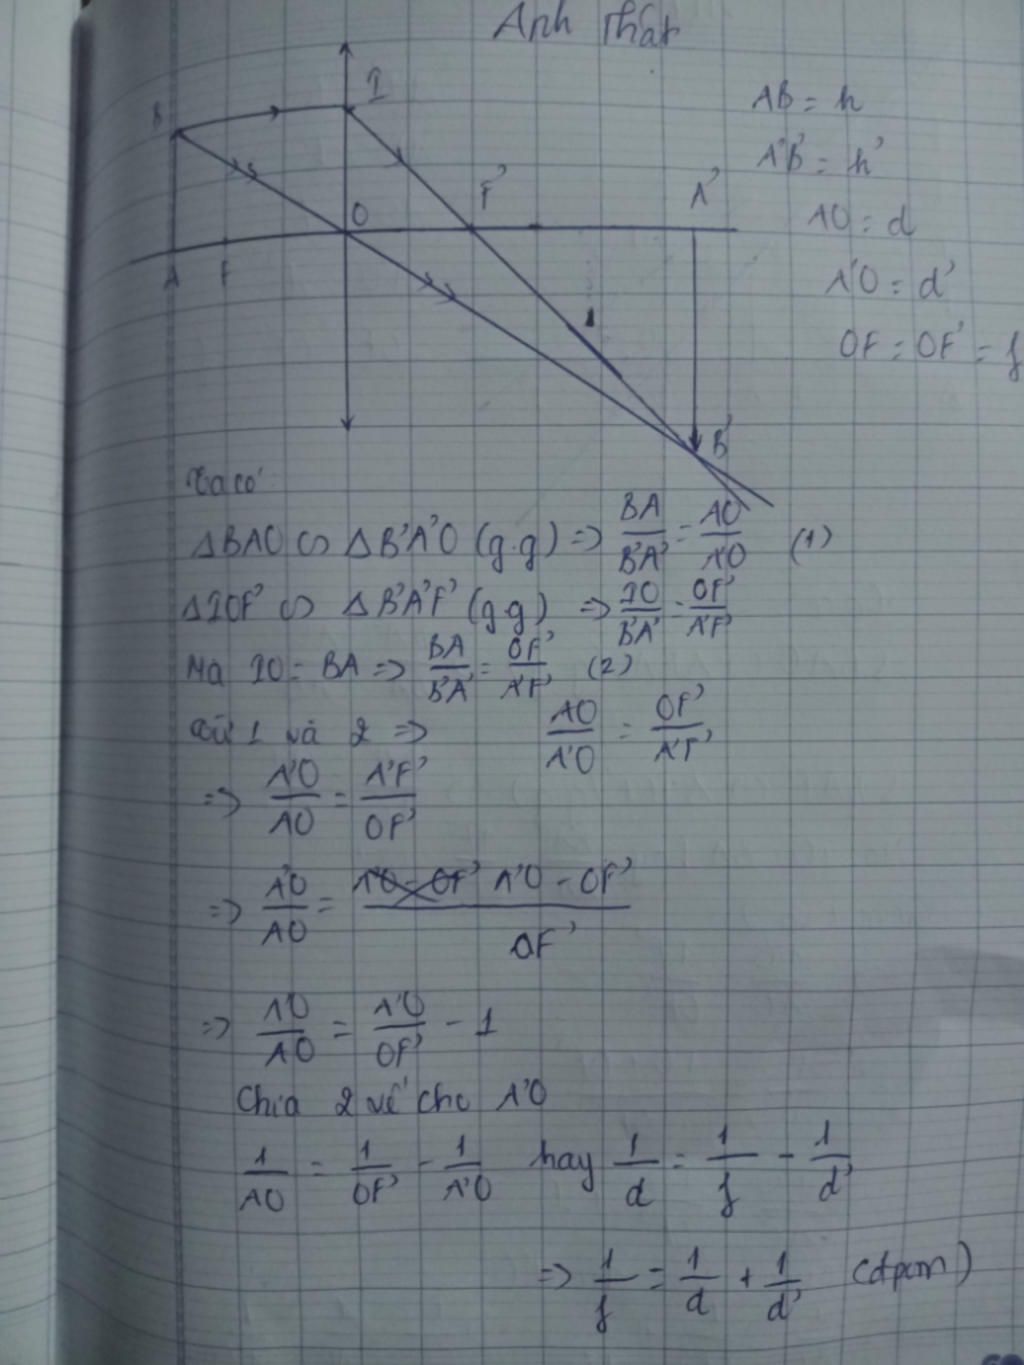 Ảnh thật
B I
AB = h
A'B' = h'
F' A'
O
AO = d
A F
A'O = d'
OF = OF' = f
B'
Ta có
ΔBAO ∽ ΔB'A'O (g.g) => BA/B'A' = AO/A'O (1)
ΔIOF' ∽ ΔB'A'F' (g.g) => IO/B'A' = OF'/A'F'
Mà IO = BA => BA/B'A' = OF'/A'F' (2)
Từ 1 và 2 => AO/A'O = OF'/A'F'
=> A'O/AO = A'F'/OF'
=> A'O/AO = A'O - OF' A'O - OF'/OF'
=> A'O/AO = A'O/OF' - 1
Chia 2 vế cho A'O
1/AO = 1/OF' - 1/A'O hay 1/d = 1/f - 1/d'
=> 1/f = 1/d + 1/d' (đpcm)